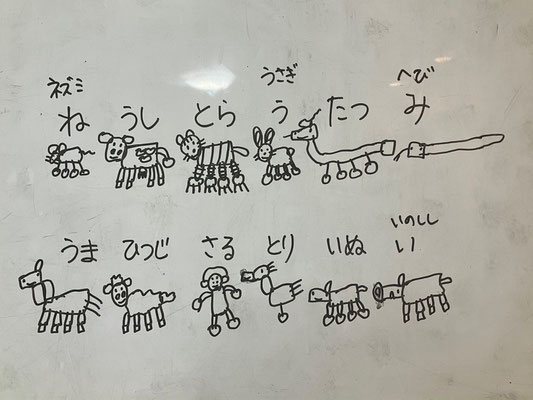 ネズミ うさぎ へび
ね うし とら う たつ み
いのしし
うま ひつじ さる とり いぬ い